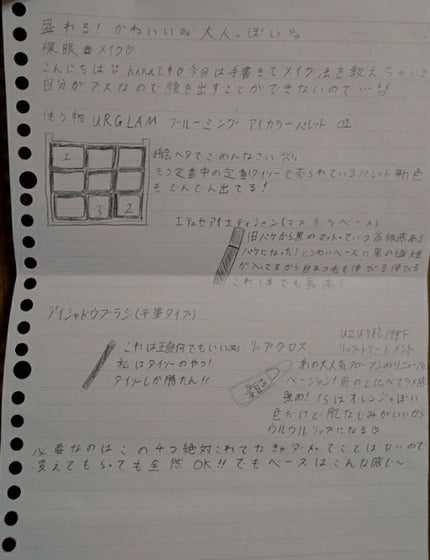 盛れる！かわいい 大人っぽい
裸眼 メイク♡
こんにちは hinaです 今日は手書きでメイク法を教えちゃいます
自分がブスなので顔を出すことができないので…
使う物 URGLAM ブルーミング アイカラーパレット 02
1
3 2
絵ヘタでごめんなさい
もう定番中の定番ダイソーで売られているパレット 新色
もでんでん出てる！
エテュセ アイエディション(マスカラベース)
旧パケから黒のマットっていう高級感ある
パケになった！とうめいベースに黒の繊維
が入ってるから
これ1本でも最高！
アイシャドウブラシ(平筆タイプ)
これは正直何でもいい
私はダイソーのやつ！
ダイソーしか勝たん!!
リップグロス
リップトリートメント
あの大人気フローフシのリニューアル
バージョン！前のとくらべてラメ感
強め！
はオレンジっぽい
色だけど肌なじみがいいから
ウルウルリップになる
必要なのはこの4つ絶対これでなきゃダメってことはないので
変えてもらっても全然OK!!でもベースはこんな感じ～